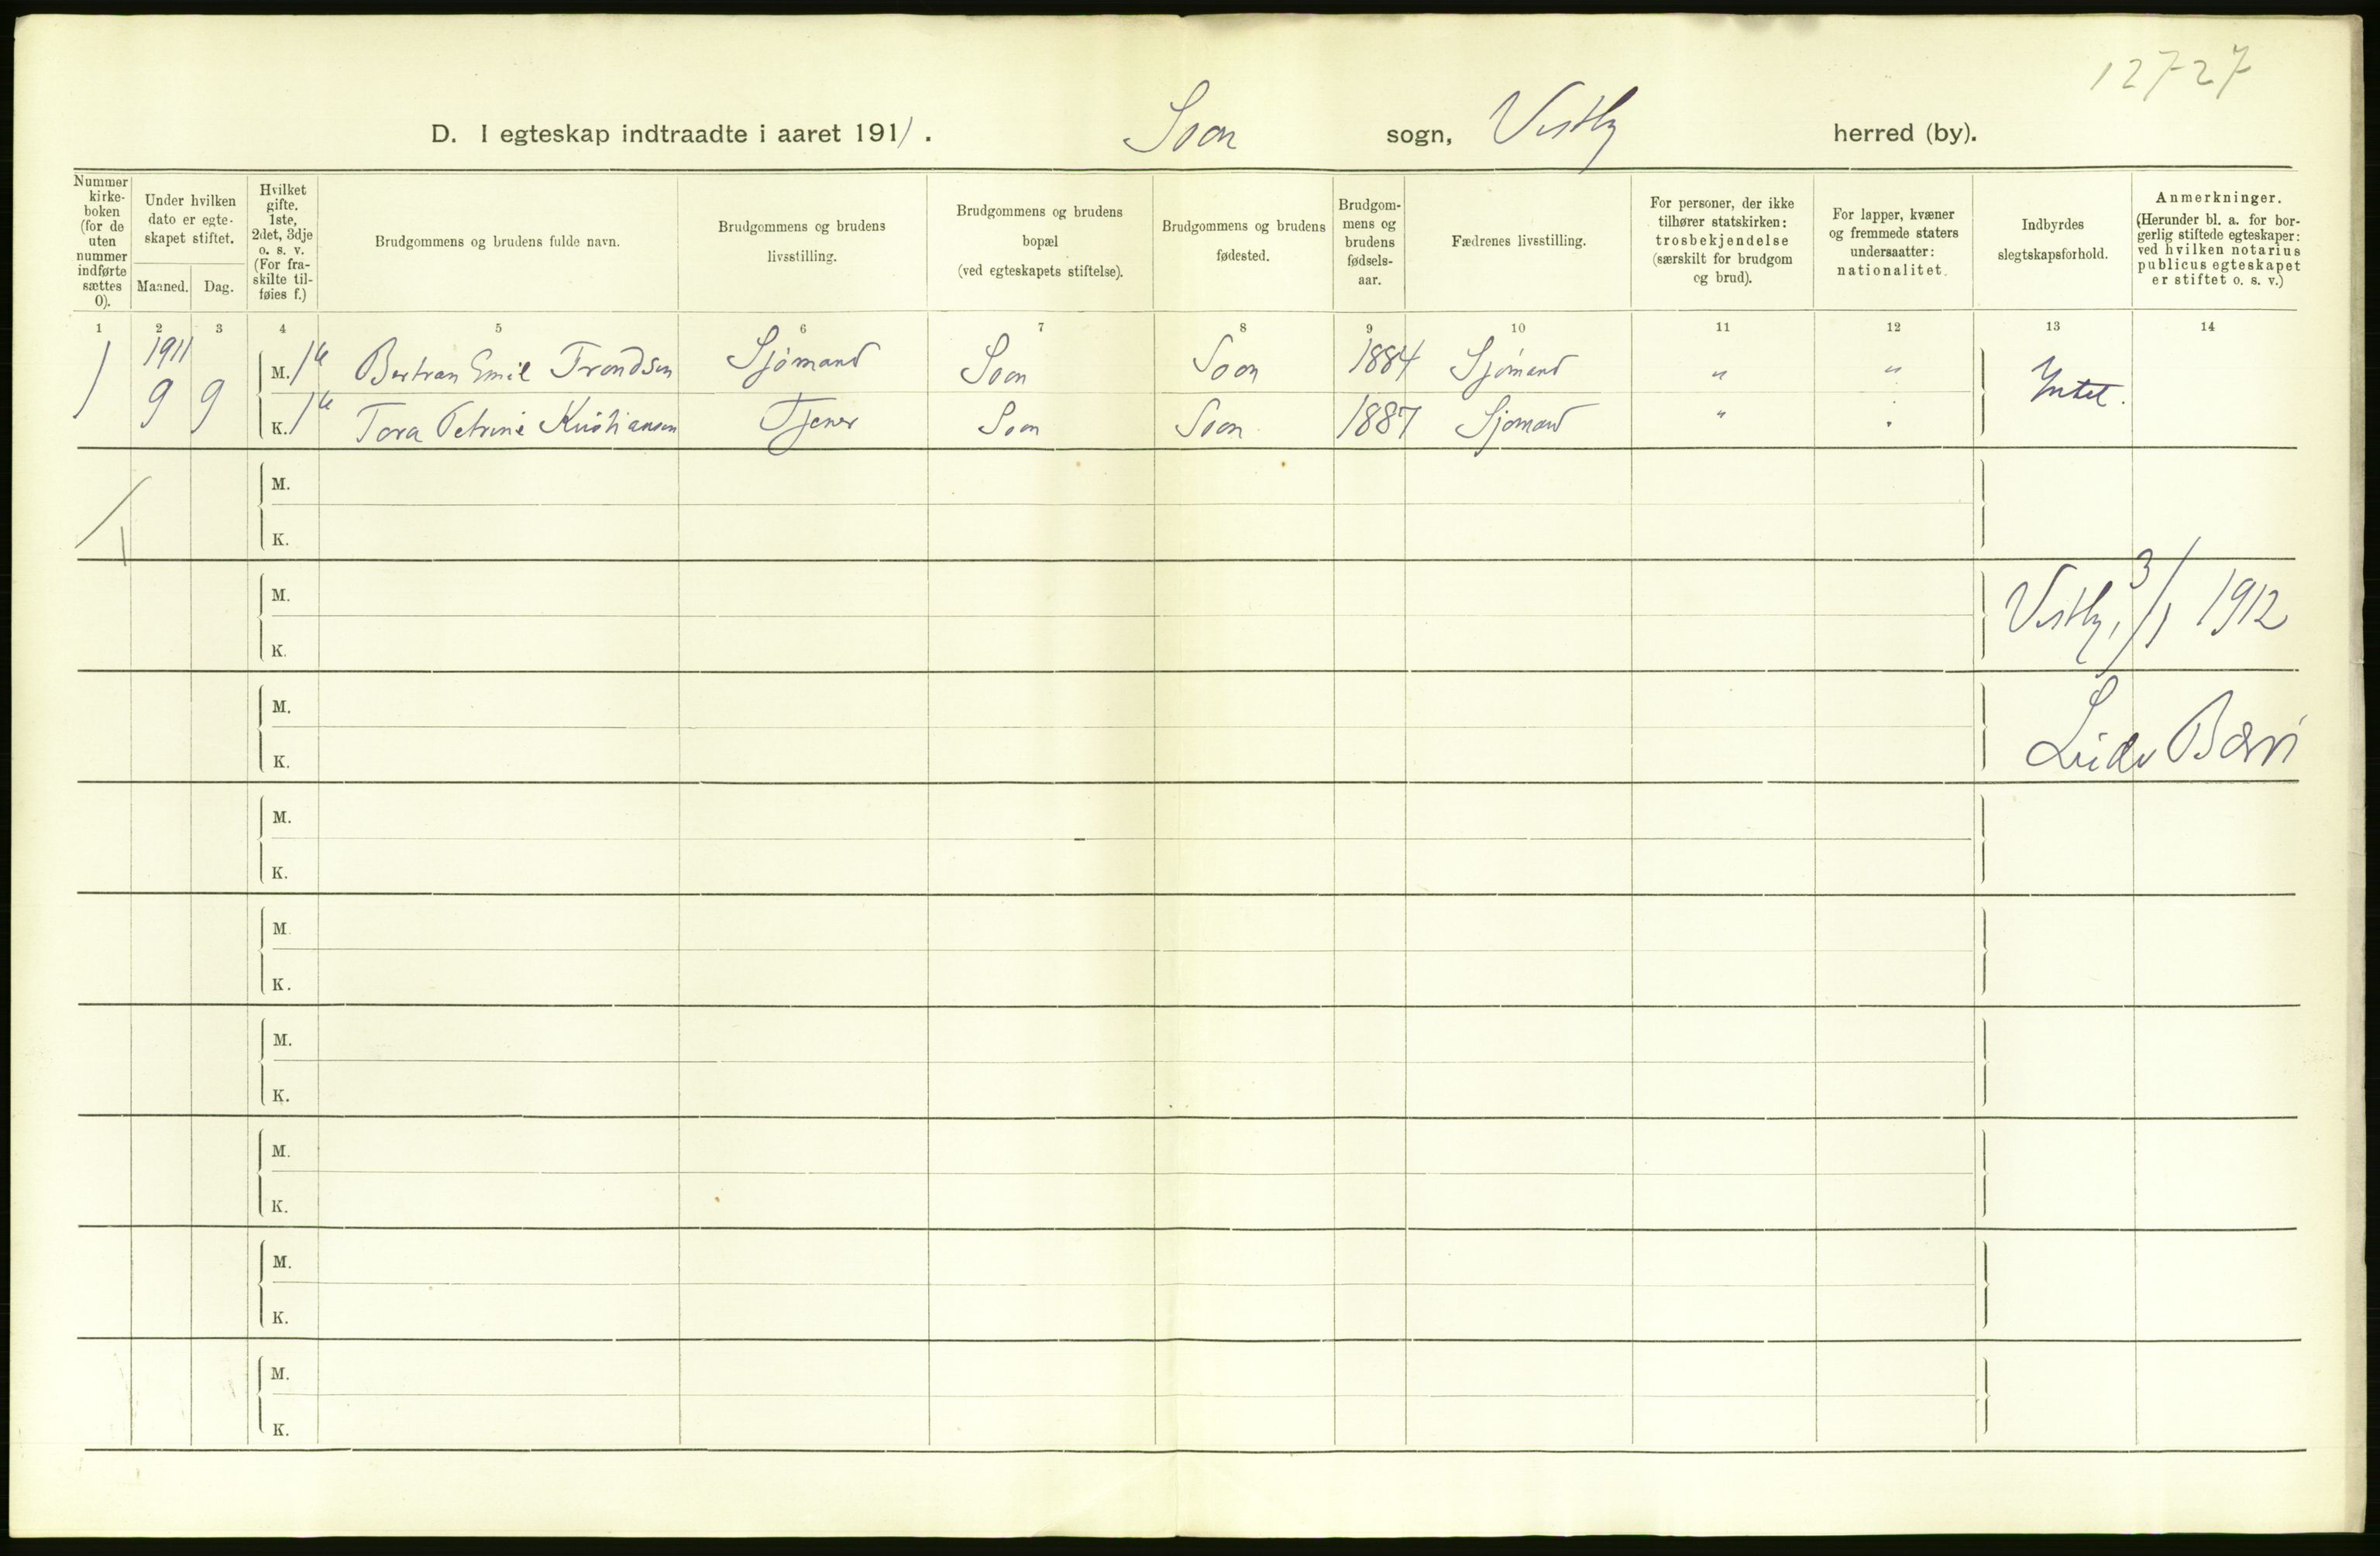 12727
D. I egteskap indtraadte i aaret 1911. Soon sogn, Vestby herred (by).
Nummer kirke-boken (for de uten nummer indførte sættes 0).
Under hvilken dato er egte-skapet stiftet.
Maaned. Dag.
Hvilket gifte. 1ste, 2det, 3dje o. s. v. (For fra-skilte til-føies f.)
Brudgommens og brudens fulde navn.
Brudgommens og brudens livsstilling.
Brudgommens og brudens bopæl (ved egteskapets stiftelse).
Brudgommens og brudens fødested.
Brudgom-mens og brudens fødsels-aar.
Fædrenes livsstilling.
For personer, der ikke tilhører statskirken: trosbekjendelse (særskilt for brudgom og brud).
For lapper, kvæner og fremmede staters undersaatter: nationalitet.
Indbyrdes slegtskapsforhold.
Anmerkninger. (Herunder bl. a. for bor-gerlig stiftede egteskaper: ved hvilken notarius publicus egteskapet er stiftet o. s. v.)
1 2 3 4 5 6 7 8 9 10 11 12 13 14
1911
1 9 9
M. 1ste Bertran Emil Trondsen Sjømand Soon Soon 1884 Sjømand " " Intet.
K. 1ste Tora Petrine Kristiansen Tjener Soon Soon 1887 Sjømand "
M.
1
K.
M.
Vestby, 3/1 1912
K.
M.
K.
M.
K.
M.
K.
M.
K.
M.
K.
M.
K.
M.
K.